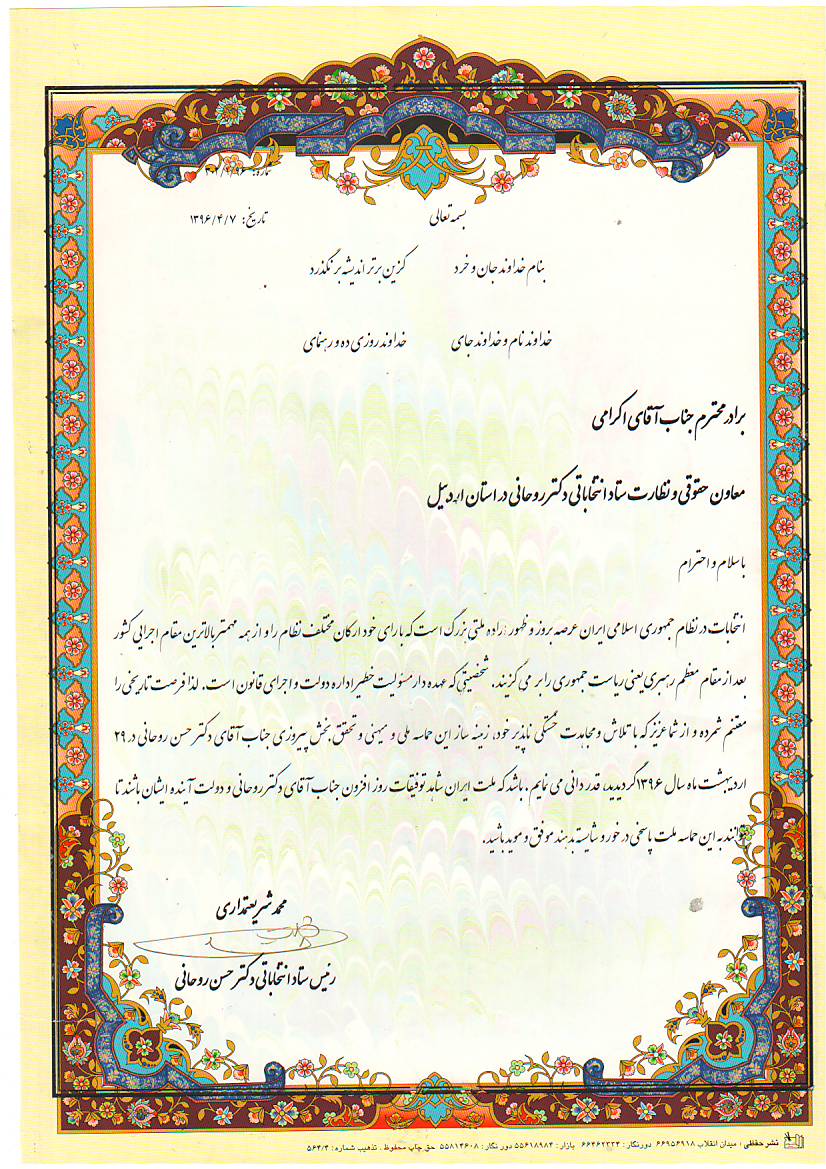 تاریخ: ۱۳۹۶/۴/۷
بسمه تعالی
بنام خداوند جان و خرد کزین برتر اندیشه برنگذرد
خداوند نام و خداوند جای خداوند روزی ده و رهنمای
برادر محترم جناب آقای اکرامی
معاون حقوقی و نظارت ستاد انتخاباتی دکتر روحانی در استان اردبیل
باسلام و احترام
انتخابات در نظام جمهوری اسلامی ایران عرصه بروز و ظهور اراده ملتی بزرگ است که با رای خود ارکان مختلف نظام را و از همه مهمتر بالاترین مقام اجرایی کشور
بعد از مقام معظم رهبری یعنی ریاست جمهوری را بر می گزینند. شخصیتی که عهده دار مسئولیت خطیر اداره دولت و اجرای قانون است. لذا فرصت تاریخی را
مغتنم شمرده و از شما عزیز که با تلاش و مجاهدت خستگی ناپذیر خود، زمینه ساز این حماسه ملی و میهنی و تحقق بخش پیروزی جناب آقای دکتر حسن روحانی در ۲۹
اردیبهشت ماه سال ۱۳۹۶ گردیدید، قدر دانی می نمایم. باشد که ملت ایران شاهد توفیقات روز افزون جناب آقای دکتر روحانی و دولت آینده ایشان باشند تا
بتوانند به این حماسه ملت پاسخی در خور و شایسته بدهند موفق و موید باشید.
محمد شریعتمداری
رئیس ستاد انتخاباتی دکتر حسن روحانی
نشر حفظی: میدان انقلاب ۶۶۹۵۶۹۱۸ دورنگار: ۶۶۴۶۲۳۳۴ بازار: ۵۵۶۱۸۹۸۴ دور نگار: ۵۵۸۱۴۶۰۸ حق چاپ محفوظ. تذهیب شماره: ۵۶۴/۴